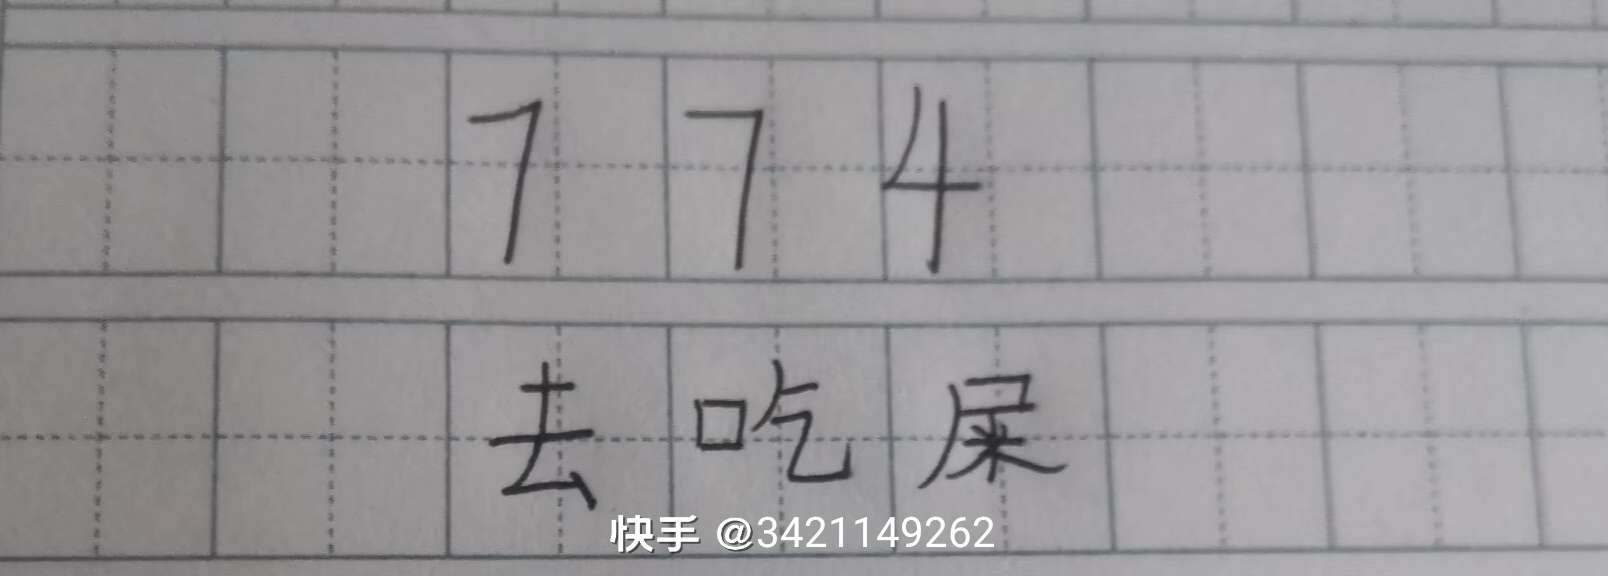 774
去吃屎
快手 @3421149262